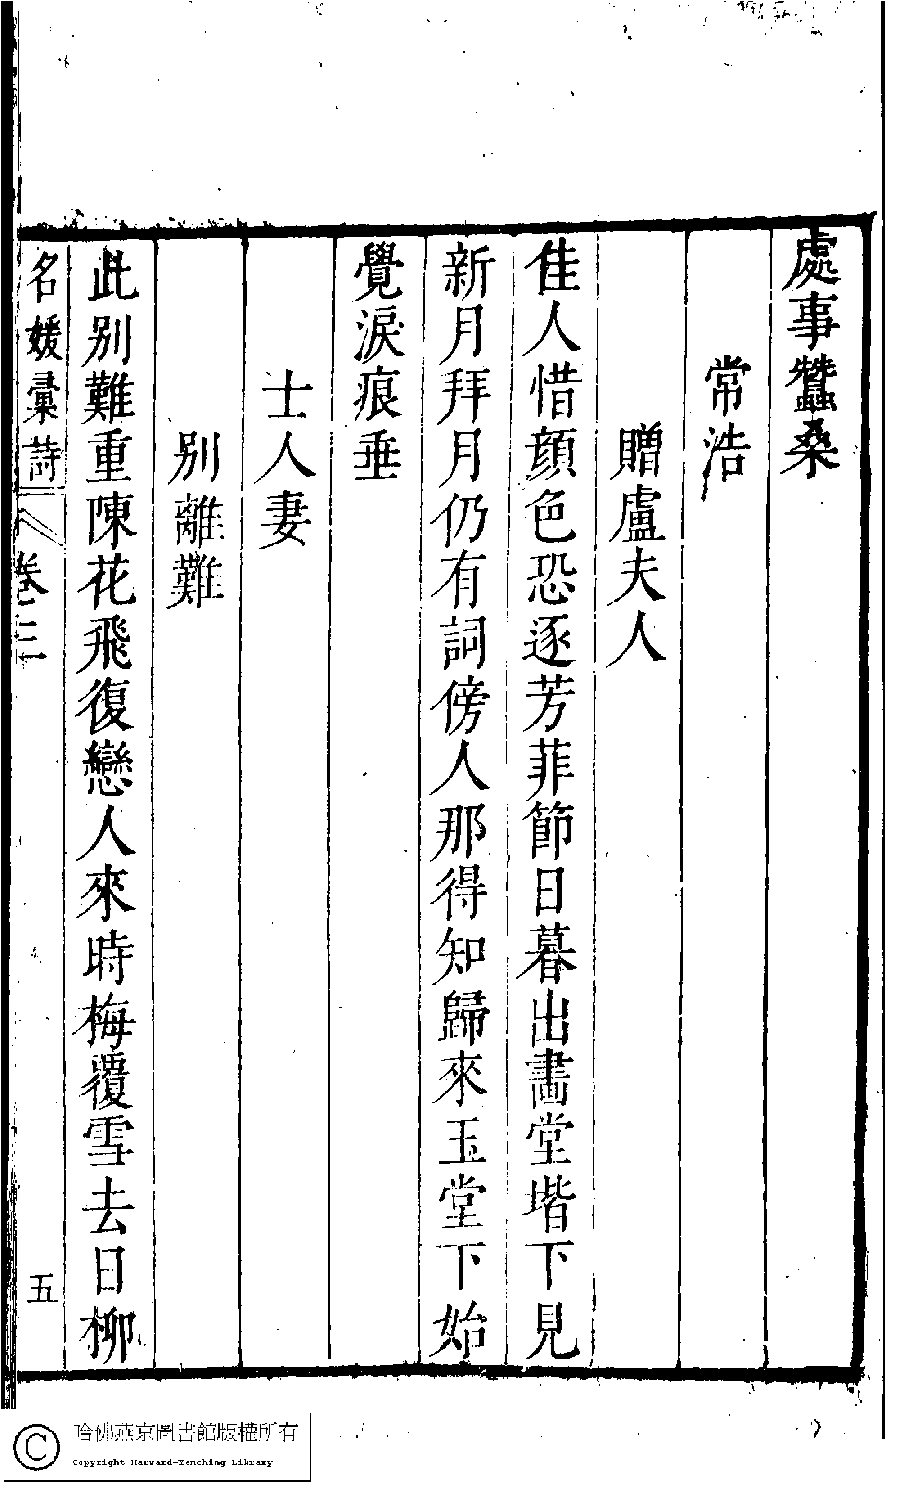 處事蠶桑
常浩
贈盧夫人
佳人惜顔色恐逐芳菲節日暮出畵堂堦下見
新月拜月仍有詞傍人那得知歸來玉堂下始
覺淚痕垂
士人妻
别離難
此别難重陳花飛復戀人來時梅覆雪去日柳
名媛彙詩
卷三
五
哈佛燕京圖書館版權所有
Copyright Harvard-Yenching Library